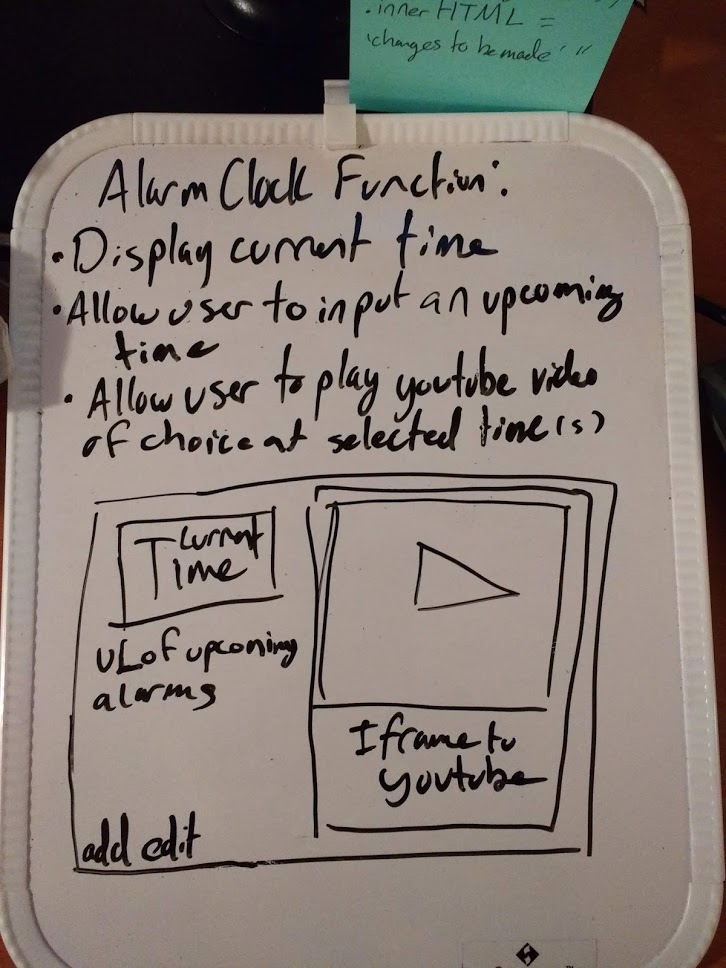 .inner HTML =
'changes to be made' "
Alarm Clock Function:
• Display current time
• Allow user to input an upcoming
time
• Allow user to play youtube video
of choice at selected time(s)
Current
Time
UL of upcoming
alarms
Iframe to
youtube
add edit